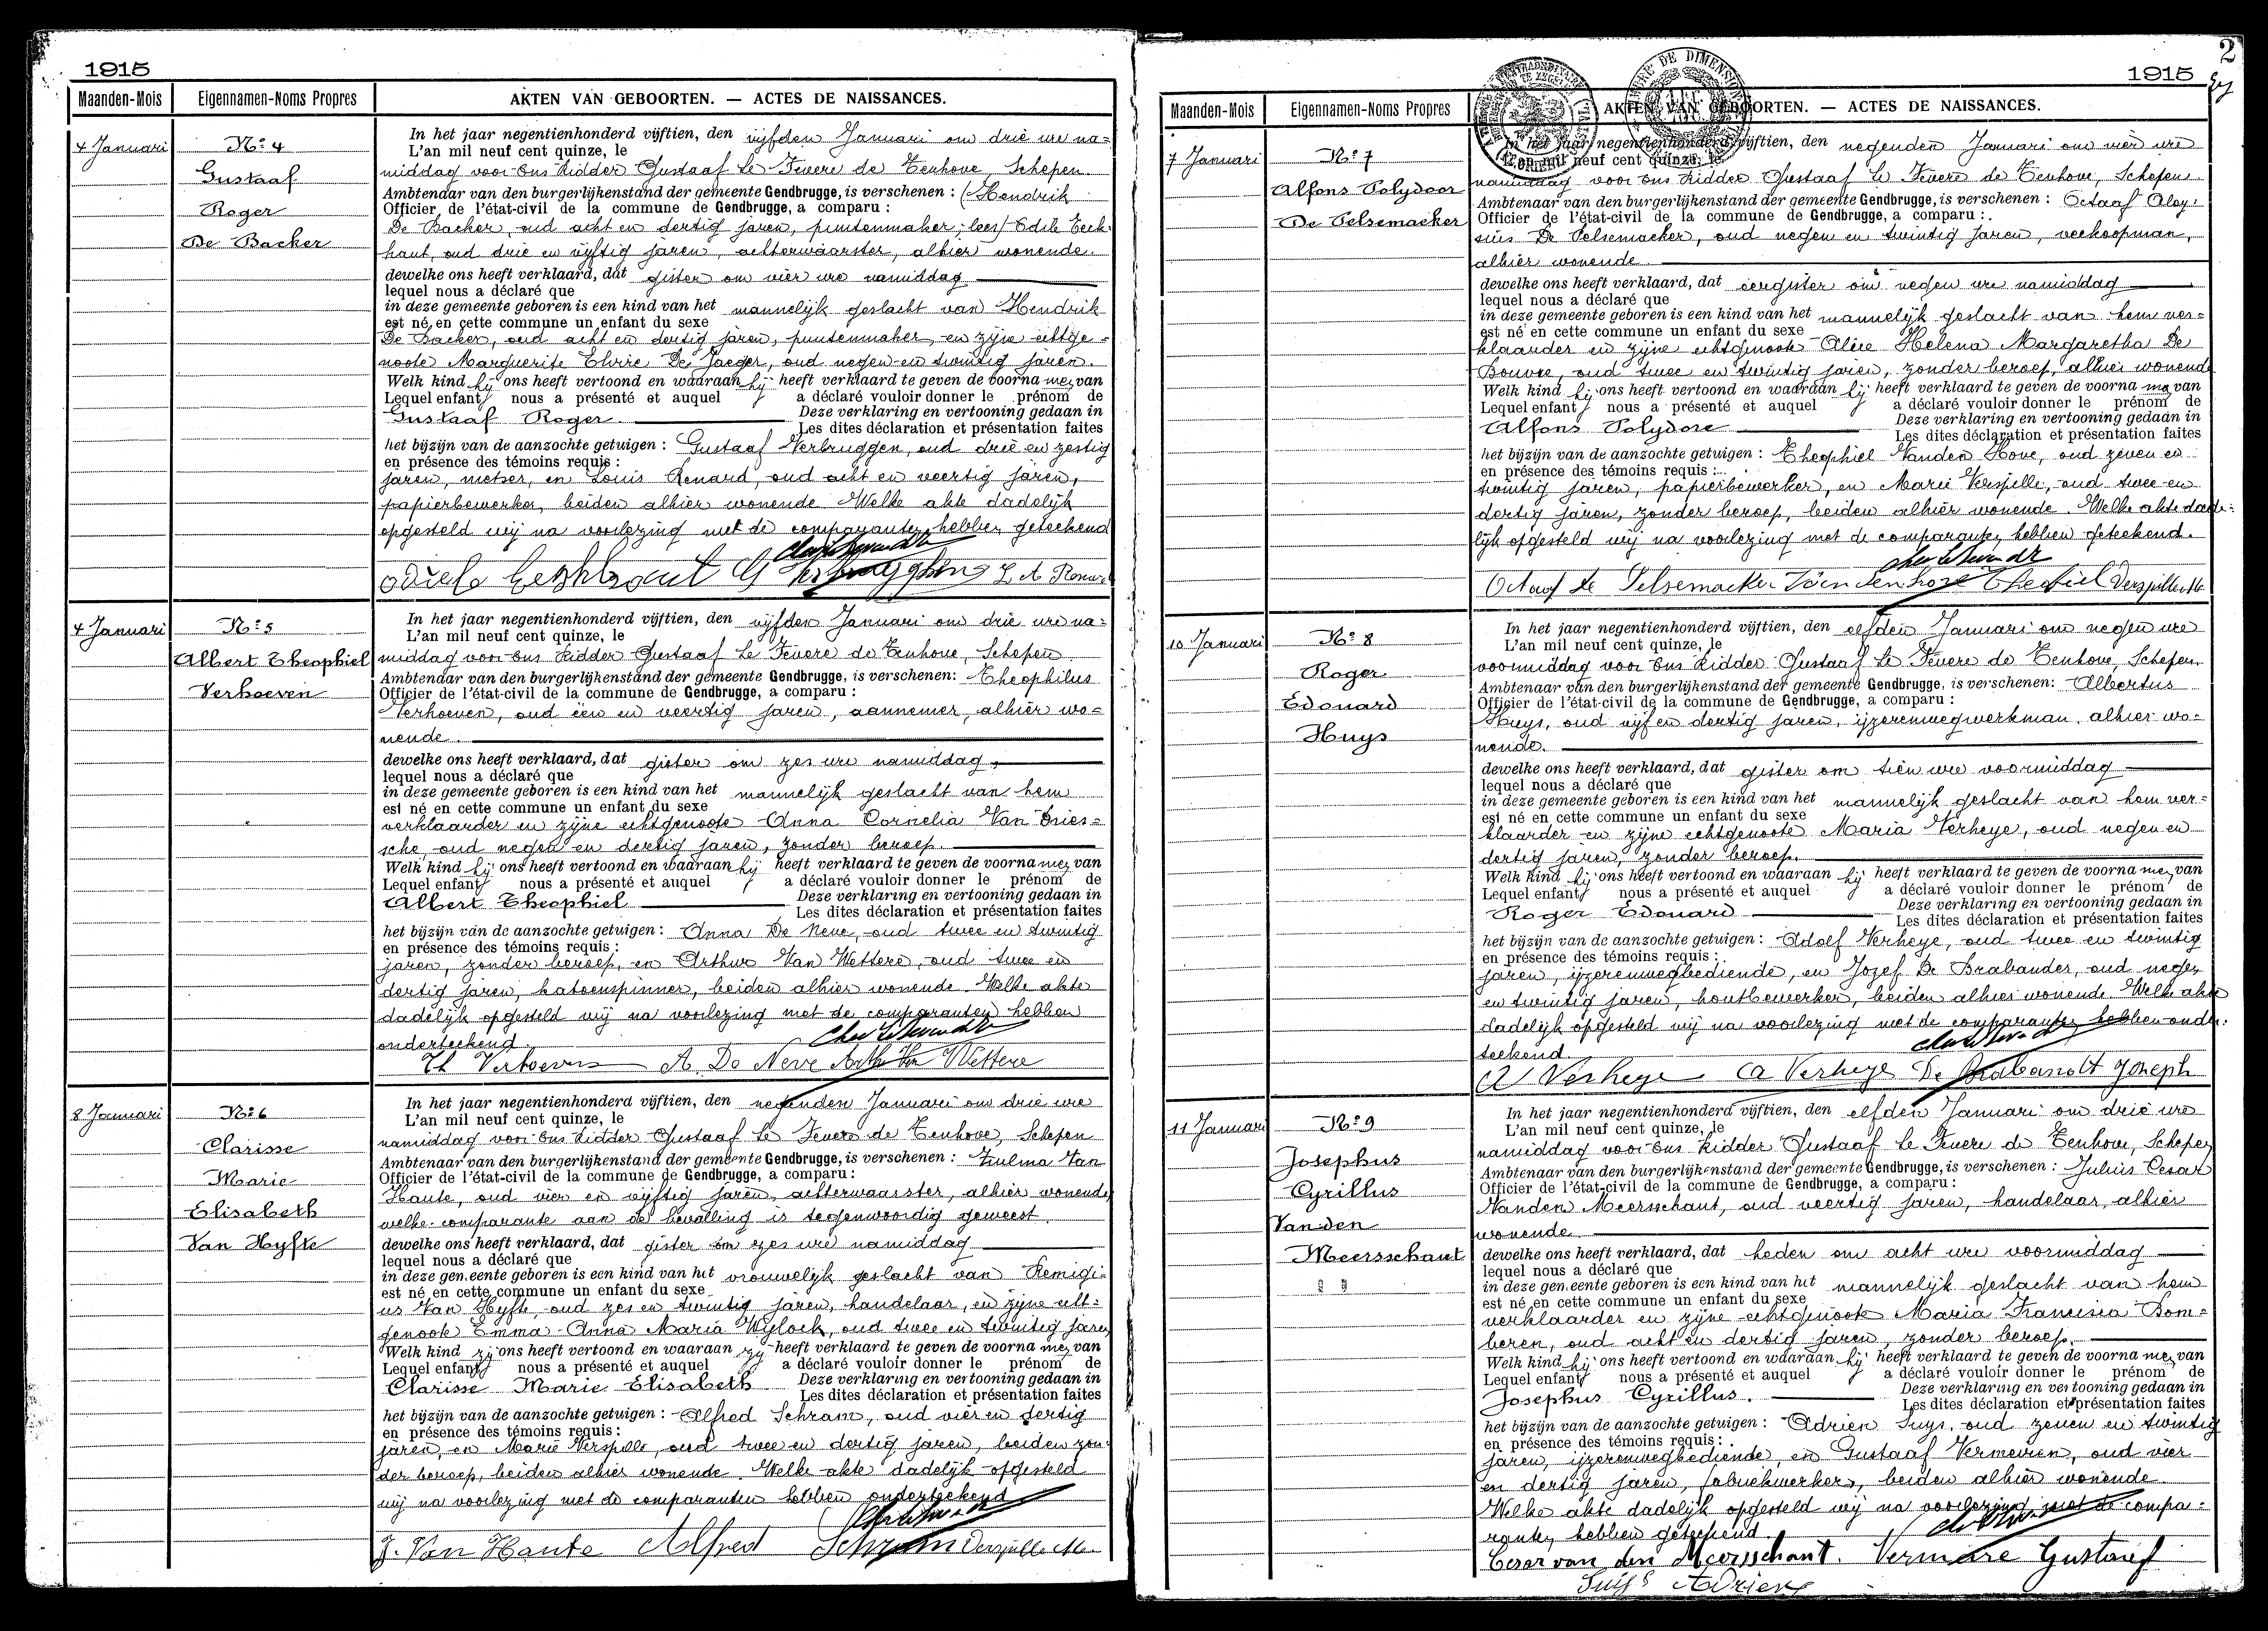 1915
Maanden-Mois Eigennamen-Noms Propres AKTEN VAN GEBOORTEN. — ACTES DE NAISSANCES.
4 Januari
Nº 4
Gustaaf
Roger
De Backer
In het jaar negentienhonderd vijftien, den vijfden Januari om drie ure na=
L'an mil neuf cent quinze, le
middag voor Ons Ridder Gustaaf Le Fevere de Tenhove, Schepen
Ambtenaar van den burgerlijkenstand der gemeente Gendbrugge, is verschenen : (Hendrik
Officier de l'état-civil de la commune de Gendbrugge, a comparu :
De Backer, oud acht en dertig jaren, puntenmaker; lees) Odile Eeck
haut, oud drie en vijftig jaren, achterwaarster, alhier wonende.
dewelke ons heeft verklaard, dat gister om vier ure namiddag
lequel nous a déclaré que
in deze gemeente geboren is een kind van het mannelijk geslacht van Hendrik
est né en cette commune un enfant du sexe
De Backer, oud acht en dertig jaren, puntenmaker, en zijne echtge=
noote Marguerite Elvire De Jaeger, oud negen en twintig jaren.
Welk kind hij ons heeft vertoond en waaraan hij heeft verklaard te geven de voornamen van
Lequel enfant nous a présenté et auquel a déclaré vouloir donner le prénom de
Gustaaf Roger Deze verklaring en vertooning gedaan in
Les dites déclaration et présentation faites
het bijzijn van de aanzochte getuigen : Gustaaf Verbruggen, oud drie en zestig
en présence des témoins requis :
jaren, metser, en Louis Renard, oud acht en veertig jaren,
papierbewerker, beiden alhier wonende. Welke akte dadelijk
opgesteld wij na voorlezing met de comparanten hebben geteekend
4 Januari
Nº 5
Albert Theophiel
Verhoeven
In het jaar negentienhonderd vijftien, den vijfden Januari om drie ure na=
L'an mil neuf cent quinze, le
middag voor Ons Ridder Gustaaf Le Fevere de Tenhove, Schepen
Ambtenaar van den burgerlijkenstand der gemeente Gendbrugge, is verschenen: Theophilus
Officier de l'état-civil de la commune de Gendbrugge, a comparu :
Verhoeven, oud een en veertig jaren, aannemer, alhier wo=
nende.
dewelke ons heeft verklaard, dat gister om zes ure namiddag
lequel nous a déclaré que
in deze gemeente geboren is een kind van het mannelijk geslacht van hem
est né en cette commune un enfant du sexe
verklaarder en zijne echtgenoote Anna Cornelia Van Dries=
sche, oud negen en dertig jaren, zonder beroep.
Welk kind hij ons heeft vertoond en waaraan hij heeft verklaard te geven de voornamen van
Lequel enfant nous a présenté et auquel a déclaré vouloir donner le prénom de
Albert Theophiel Deze verklaring en vertooning gedaan in
Les dites déclaration et présentation faites
het bijzijn van de aanzochte getuigen : Anna De Neve, oud twee en twintig
en présence des témoins requis :
jaren, zonder beroep, en Arthur Van Wettere, oud twee en
dertig jaren, katoenspinner, beiden alhier wonende. Welke akte
dadelijk opgesteld wij na voorlezing met de comparanten hebben
onderteekend.
Th Verhoeven A. De Neve Arthur Van Wettere
8 Januari
Nº 6
Clarisse
Marie
Elisabeth
Van Hyfte
In het jaar negentienhonderd vijftien, den negenden Januari om drie ure
L'an mil neuf cent quinze, le
namiddag voor Ons Ridder Gustaaf Le Fevere de Tenhove, Schepen
Ambtenaar van den burgerlijkenstand der gemeente Gendbrugge, is verschenen : Zulma Van
Officier de l'état-civil de la commune de Gendbrugge, a comparu :
Haute, oud vier en vijftig jaren, achterwaarster, alhier wonende
welke comparante aan de bevalling is tegenwoordig geweest.
dewelke ons heeft verklaard, dat gister om zes ure namiddag
lequel nous a déclaré que
in deze gemeente geboren is een kind van het vrouwelijk geslacht van Remigi=
est né en cette commune un enfant du sexe
us Van Hyfte, oud zes en twintig jaren, handelaar, en zijne echt=
genoote Emma Anna Maria Wylock, oud twee en twintig jaren
Welk kind zij ons heeft vertoond en waaraan zij heeft verklaard te geven de voornamen van
Lequel enfant nous a présenté et auquel a déclaré vouloir donner le prénom de
Clarisse Marie Elisabeth Deze verklaring en vertooning gedaan in
Les dites déclaration et présentation faites
het bijzijn van de aanzochte getuigen : Alfred Schram, oud vier en dertig
en présence des témoins requis :
jaren, en Marie Verspille, oud twee en dertig jaren, beiden zon=
der beroep, beiden alhier wonende. Welke akte dadelijk opgesteld
wij na voorlezing met de comparanten hebben onderteekend
Z. Van Haute Alfred Schram Verspille M.
2
1915
Maanden-Mois Eigennamen-Noms Propres AKTEN VAN GEBOORTEN. — ACTES DE NAISSANCES.
7 Januari
Nº 7
Alfons Polydoor
De Pelsemaeker
In het jaar negentienhonderd vijftien, den negenden Januari om vier ure
L'an mil neuf cent quinze, le
namiddag voor Ons Ridder Gustaaf Le Fevere de Tenhove, Schepen
Ambtenaar van den burgerlijkenstand der gemeente Gendbrugge, is verschenen : Octaaf Aloy=
Officier de l'état-civil de la commune de Gendbrugge, a comparu :
sius De Pelsemaeker, oud negen en twintig jaren, veekoopman,
alhier wonende
dewelke ons heeft verklaard, dat eergister om negen ure namiddag
lequel nous a déclaré que
in deze gemeente geboren is een kind van het mannelijk geslacht van hem ver=
est né en cette commune un enfant du sexe
klaarder en zijne echtgenoote Alice Helena Margaretha De
Bouvre, oud twee en twintig jaren, zonder beroep, alhier wonende
Welk kind hij ons heeft vertoond en waaraan hij heeft verklaard te geven de voornamen van
Lequel enfant nous a présenté et auquel a déclaré vouloir donner le prénom de
Alfons Polydore Deze verklaring en vertooning gedaan in
Les dites déclaration et présentation faites
het bijzijn van de aanzochte getuigen : Theophiel Vanden Hove, oud zeven en
en présence des témoins requis :
twintig jaren, papierbewerker, en Marie Verspille, oud twee en
dertig jaren, zonder beroep, beiden alhier wonende. Welke akte dade=
lijk opgesteld wij na voorlezing met de comparanten hebben geteekend.
Octaaf De Pelsemaeker Vandenhove Theofiel Verspille M
10 Januari
Nº 8
Roger
Edouard
Huys
In het jaar negentienhonderd vijftien, den elfden Januari om negen ure
L'an mil neuf cent quinze, le
voormiddag voor Ons Ridder Gustaaf Le Fevere de Tenhove, Schepen
Ambtenaar van den burgerlijkenstand der gemeente Gendbrugge, is verschenen: Albertus
Officier de l'état-civil de la commune de Gendbrugge, a comparu :
Huys, oud vijf en dertig jaren, ijzerenwegwerkman, alhier wo=
nende.
dewelke ons heeft verklaard, dat gister om tien ure voormiddag
lequel nous a déclaré que
in deze gemeente geboren is een kind van het mannelijk geslacht van hem ver=
est né en cette commune un enfant du sexe
klaarder en zijne echtgenoote Maria Verheye, oud negen en
dertig jaren, zonder beroep.
Welk kind hij ons heeft vertoond en waaraan hij heeft verklaard te geven de voornamen van
Lequel enfant nous a présenté et auquel a déclaré vouloir donner le prénom de
Roger Edouard Deze verklaring en vertooning gedaan in
Les dites déclaration et présentation faites
het bijzijn van de aanzochte getuigen : Adolf Verheye, oud twee en twintig
en présence des témoins requis :
jaren, ijzerenwegbediende, en Jozef De Brabander, oud negen
en twintig jaren, houtbewerker, beiden alhier wonende. Welke akte
dadelijk opgesteld wij na voorlezing met de comparanten hebben onder=
teekend.
A Verheye De Brabandt Joseph
11 Januari
Nº 9
Josephus
Cyrillus
Vanden
Meersschaut
In het jaar negentienhonderd vijftien, den elfden Januari om drie ure
L'an mil neuf cent quinze, le
namiddag voor Ons Ridder Gustaaf Le Fevere de Tenhove, Schepen
Ambtenaar van den burgerlijkenstand der gemeente Gendbrugge, is verschenen : Julius Cesar
Officier de l'état-civil de la commune de Gendbrugge, a comparu :
Vanden Meersschaut, oud veertig jaren, handelaar, alhier
wonende
dewelke ons heeft verklaard, dat heden om acht ure voormiddag
lequel nous a déclaré que
in deze gemeente geboren is een kind van het mannelijk geslacht van hem
est né en cette commune un enfant du sexe
verklaarder en zijne echtgenoote Maria Francisca Bom=
beren, oud acht en dertig jaren, zonder beroep.
Welk kind hij ons heeft vertoond en waaraan hij heeft verklaard te geven de voornamen van
Lequel enfant nous a présenté et auquel a déclaré vouloir donner le prénom de
Josephus Cyrillus. Deze verklaring en vertooning gedaan in
Les dites déclaration et présentation faites
het bijzijn van de aanzochte getuigen : Adrien Suys, oud zeven en twintig
en présence des témoins requis :
jaren, ijzerenwegbediende, en Gustaaf Vermeiren, oud vier
en dertig jaren, fabriekwerker, beiden alhier wonende
Welke akte dadelijk opgesteld wij na voorlezing met de compa=
ranten hebben geteekend.
Cesar van den Meersschaut. Vermare Gustaef
Suys Adrien